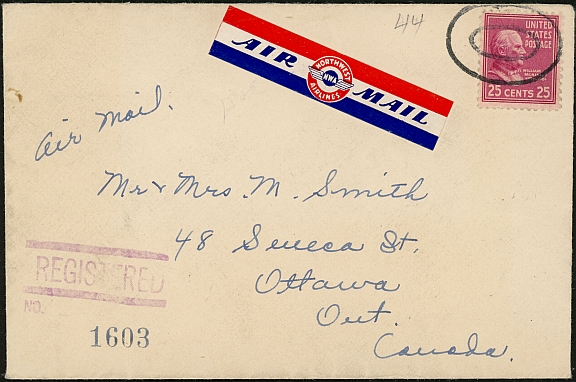 44
UNITED
STATES
POSTAGE
25 CENTS 25
AIR MAIL
NORTHWEST
NWA
AIRLINES
Air Mail.
Mr & Mrs. M. Smith
48 Seneca St.
Ottawa
Ont.
Canada.
REGISTERED
NO.
1603